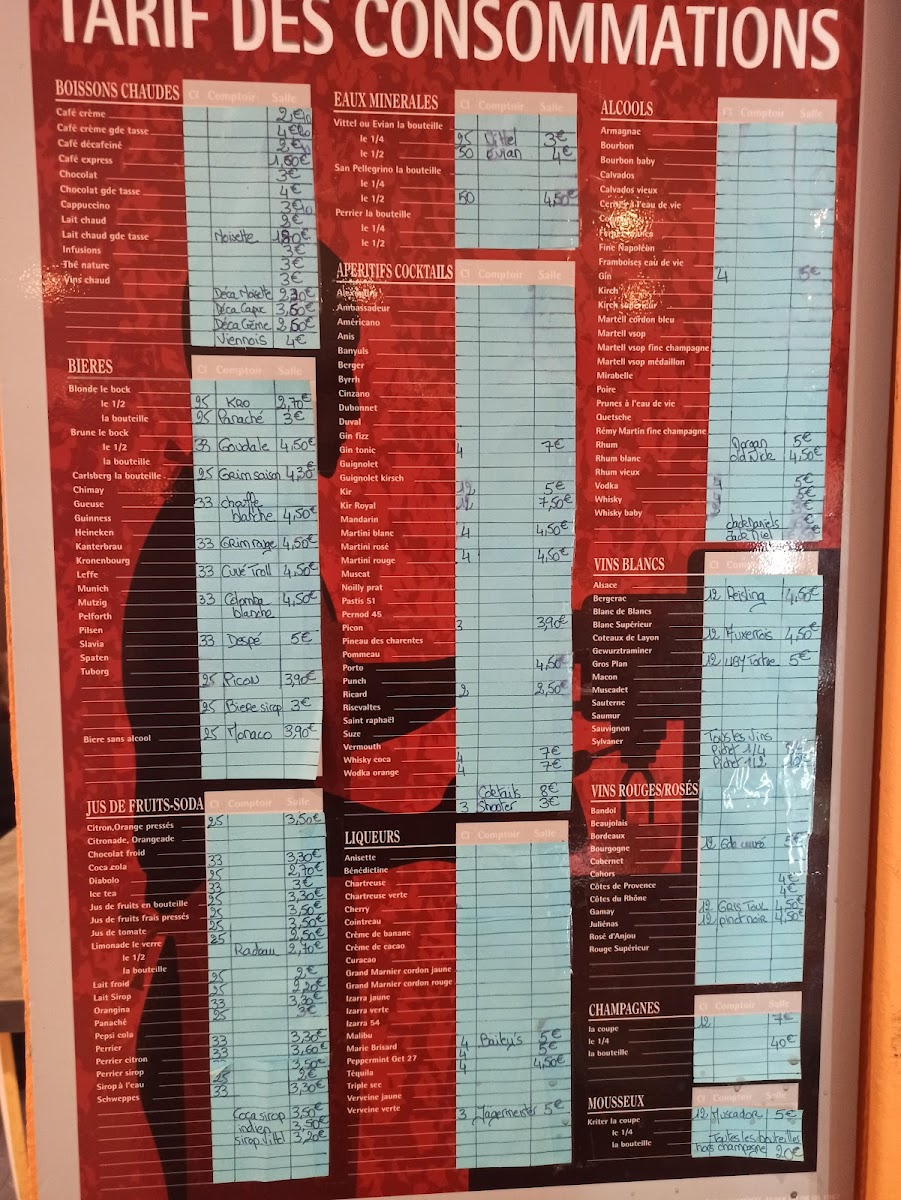 TARIF DES CONSOMMATIONS
BOISSONS CHAUDES Cl Comptoir Salle
Café crème
Café crème gde tasse
Café décafeiné
Café express
Chocolat 3€
Chocolat gde tasse 4€
Cappuccino
Lait chaud
Lait chaud gde tasse Noisette
Infusions 3€
Thé nature 3€
Vins chaud 3€
Déca Noisette
Déca Capu
Déca Crème
Viennois 4€
BIERES Cl Comptoir Salle
Blonde le bock
le 1/2 25 Kro 2,70€
la bouteille 25 Panaché 3€
Brune le bock
le 1/2 33 Goudale 4,50€
la bouteille
Carlsberg la bouteille 25 Grim saison 4,30€
Chimay
Gueuse 33 chouffe
Guinness blanche 4,50€
Heincken
Kanterbrau 33 Grim rouge 4,50€
Kronenbourg
Leffe 33 Cuvé Troll 4,50€
Munich
Mutzig 33 Colomba 4,50€
Pelforth blanche
Pilsen
Slavia 33 Despé 5€
Spaten
Tuborg
25 Picon 3,90€
25 Biere sirop 3€
Biere sans alcool 25 Monaco 3,90€
JUS DE FRUITS-SODA Cl Comptoir Salle
Citron,Orange pressés 25 3,50€
Citronade, Orangeade
Chocolat froid
Coca cola 33 3,30€
Diabolo 25 2,70€
Ice tea 33 3€
Jus de fruits en bouteille 25 3,30€
Jus de fruits frais pressés 25 3,50€
Jus de tomate 25 3,50€
Limonade le verre 25
le 1/2 Radeau 2,70€
la bouteille
Lait froid 25 2€
Lait Sirop 25 2,20€
Orangina 33 3,30€
Panaché 25 3€
Pepsi cola
Perrier 33 3,30€
Perrier citron 33 3,60€
Perrier sirop 3,50€
Sirop à l'eau 25 2€
Schweppes 33 3,30€
Coca sirop 3,50€
indien 3,50€
sirop Vittel 3,20€
EAUX MINERALES Cl Comptoir Salle
Vittel ou Evian la bouteille
le 1/4 25 Vittel 3€
le 1/2 50 Evian 4€
San Pellegrino la bouteille
le 1/4
le 1/2 50 4,50€
Perrier la bouteille
le 1/4
le 1/2
APERITIFS COCKTAILS Cl Comptoir Salle
Alexandra
Ambassadeur
Américano
Anis
Banyuls
Berger
Byrrh
Cinzano
Dubonnet
Duval
Gin fizz
Gin tonic 4 7€
Guignolet
Guignolet kirsch
Kir 12 5€
Kir Royal 12 7,50€
Mandarin
Martini blanc 4 4,50€
Martini rosé
Martini rouge 4 4,50€
Muscat
Noilly prat
Pastis 51
Pernod 45
Picon 3 3,90€
Pineau des charentes
Pommeau
Porto 4,50€
Punch
Ricard 2 2,50€
Risevaltes
Saint raphaël
Suze
Vermouth
Whisky coca 4 7€
Wodka orange 4 7€
Cocktails 8€
3 Shooter 3€
LIQUEURS Cl Comptoir Salle
Anisette
Bénédictine
Chartreuse
Chartreuse verte
Cherry
Cointreau
Crème de banane
Crème de cacao
Curacao
Grand Marnier cordon jaune
Grand Marnier cordon rouge
Izarra jaune
Izarra verte
Izarra 54
Malibu
Marie Brisard 4 Bailey's 5€
Peppermint Get 27 4 5€
Téquila 4 4,50€
Triple sec
Verveine jaune
Verveine verte 3 Jagermeister 5€
ALCOOLS Cl Comptoir Salle
Armagnac
Bourbon
Bourbon baby
Calvados
Calvados vieux
à l'eau de vie
Fine Napoléon
Framboises eau de vie
Gin 4 5€
Kirch
Kirch supérieur
Martell cordon bleu
Martell vsop
Martell vsop fine champagne
Martell vsop médaillon
Mirabelle
Poire
Prunes à l'eau de vie
Quetsche
Rémy Martin fine champagne
Rhum Morgan 5€
Rhum blanc old Nick 4,50€
Rhum vieux
Vodka 5€
Whisky 5€
Whisky baby 3€
Jack Daniels
VINS BLANCS Cl Comptoir Salle
Alsace
Bergerac 12 Reisling 4,50€
Blanc de Blancs
Blanc Supérieur
Coteaux de Layon 12 Auxerrois 4,50€
Gewurztraminer
Gros Plan 12 UBY Tortue 5€
Macon
Muscadet
Sauterne
Saumur
Sauvignon Tous les vins
Sylvaner Pichet 1/4
Pichet 1/2
VINS ROUGES/ROSÉS Cl Comptoir Salle
Bandol
Beaujolais
Bordeaux
Bourgogne 12
Cabernet
Cahors
Côtes de Provence 4€
Côtes du Rhône 4€
Gamay 12 GRIS TOUL 4,50€
Juliénas 12 pinot noir 4,50€
Rosé d'Anjou
Rouge Supérieur
CHAMPAGNES Cl Comptoir Salle
la coupe 12 7€
le 1/4
la bouteille 40€
MOUSSEUX Cl Comptoir Salle
Kriter la coupe 12 Muscador 5€
le 1/4 Toutes les bouteilles
la bouteille hors champagne 20€